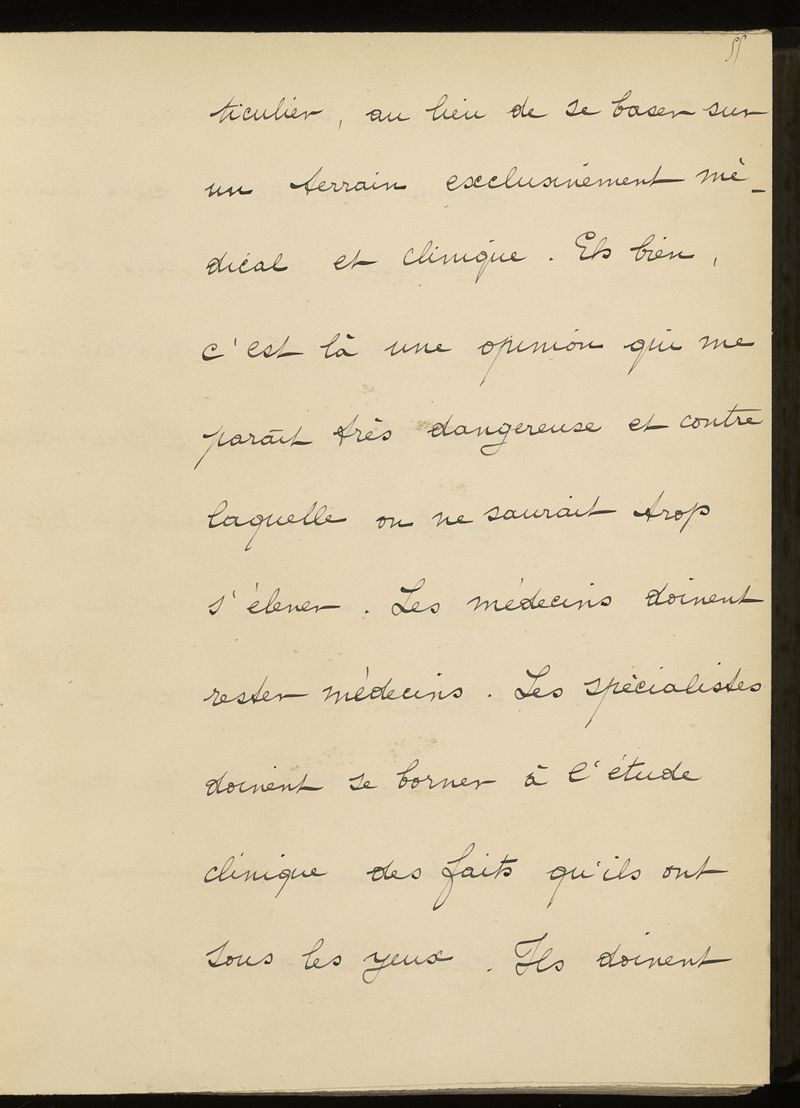 55
ticulier, au lieu de se baser sur
un terrain exclusivement mé-
dical et clinique. Eh bien,
c'est là une opinion qui me
paraît très dangereuse et contre
laquelle on ne saurait trop
s'élever. Les médecins doivent
rester médecins. Les spécialistes
doivent se borner à l'étude
clinique des faits qu'ils ont
sous les yeux. Ils doivent